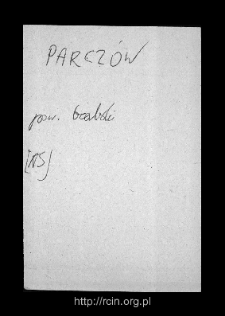 PARCZÓW
pow.
[AS]
http://rcin.org.pl